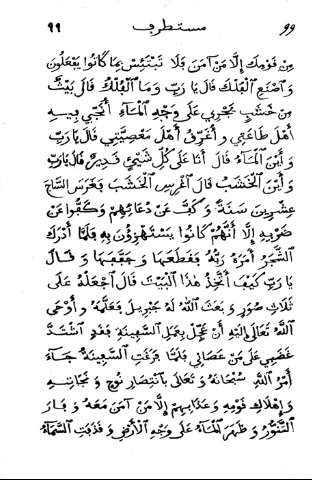 99 مستطرف ٩٩
مِنْ قَوْمِكَ إِلَّا مَنْ آمَنَ فَلَا تَبْتَئِسْ بِمَا كَانُوا يَفْعَلُونَ
وَاصْنَعِ الْفُلْكَ قَالَ يَا رَبِّ وَمَا الْفُلْكُ قَالَ بَيْتٌ
مِنْ خَشَبٍ تَجْرِي عَلَى وَجْهِ الْمَاءِ أُنَجِّي بِهِ
أَهْلَ طَاعَتِي وَأُغْرِقُ أَهْلَ مَعْصِيَتِي قَالَ يَا رَبِّ
وَأَيْنَ الْمَاءُ قَالَ أَنَا عَلَى كُلِّ شَيْءٍ قَدِيرٌ قَالَ يَا رَبِّ
وَأَيْنَ الْخَشَبُ قَالَ اغْرِسِ الْخَشَبَ فَغَرَسَ السَّاجَ
عِشْرِينَ سَنَةً وَكَفَّ عَنْ دُعَائِهِمْ وَكَفُّوا عَنْ
ضَرْبِهِ إِلَّا أَنَّهُمْ كَانُوا يَسْتَهْزِئُونَ بِهِ فَلَمَّا أَدْرَكَ
الشَّجَرُ أَمَرَهُ رَبُّهُ فَقَطَعَهَا وَجَفَّفَهَا وَقَالَ
يَا رَبِّ كَيْفَ أَتَّخِذُ هَذَا الْبَيْتَ قَالَ اجْعَلْهُ عَلَى
ثَلَاثِ صُوَرٍ وَبَعَثَ اللَّهُ لَهُ جِبْرِيلَ فَعَلَّمَهُ وَأَوْحَى
اللَّهُ تَعَالَى إِلَيْهِ أَنْ عَجِّلْ بِعَمَلِ السَّفِينَةِ فَقَدِ اشْتَدَّ
غَضَبِي عَلَى مَنْ عَصَانِي فَلَمَّا فَرَغَتِ السَّفِينَةُ جَاءَ
أَمْرُ اللَّهِ سُبْحَانَهُ وَتَعَالَى بِانْتِصَارِ نُوحٍ وَنَجَاتِهِ
وَإِهْلَاكِ قَوْمِهِ وَعَذَابِهِمْ إِلَّا مَنْ آمَنَ مَعَهُ وَفَارَ
التَّنُّورُ وَظَهَرَ الْمَاءُ عَلَى وَجْهِ الْأَرْضِ وَقَذَفَتِ السَّمَاءُ